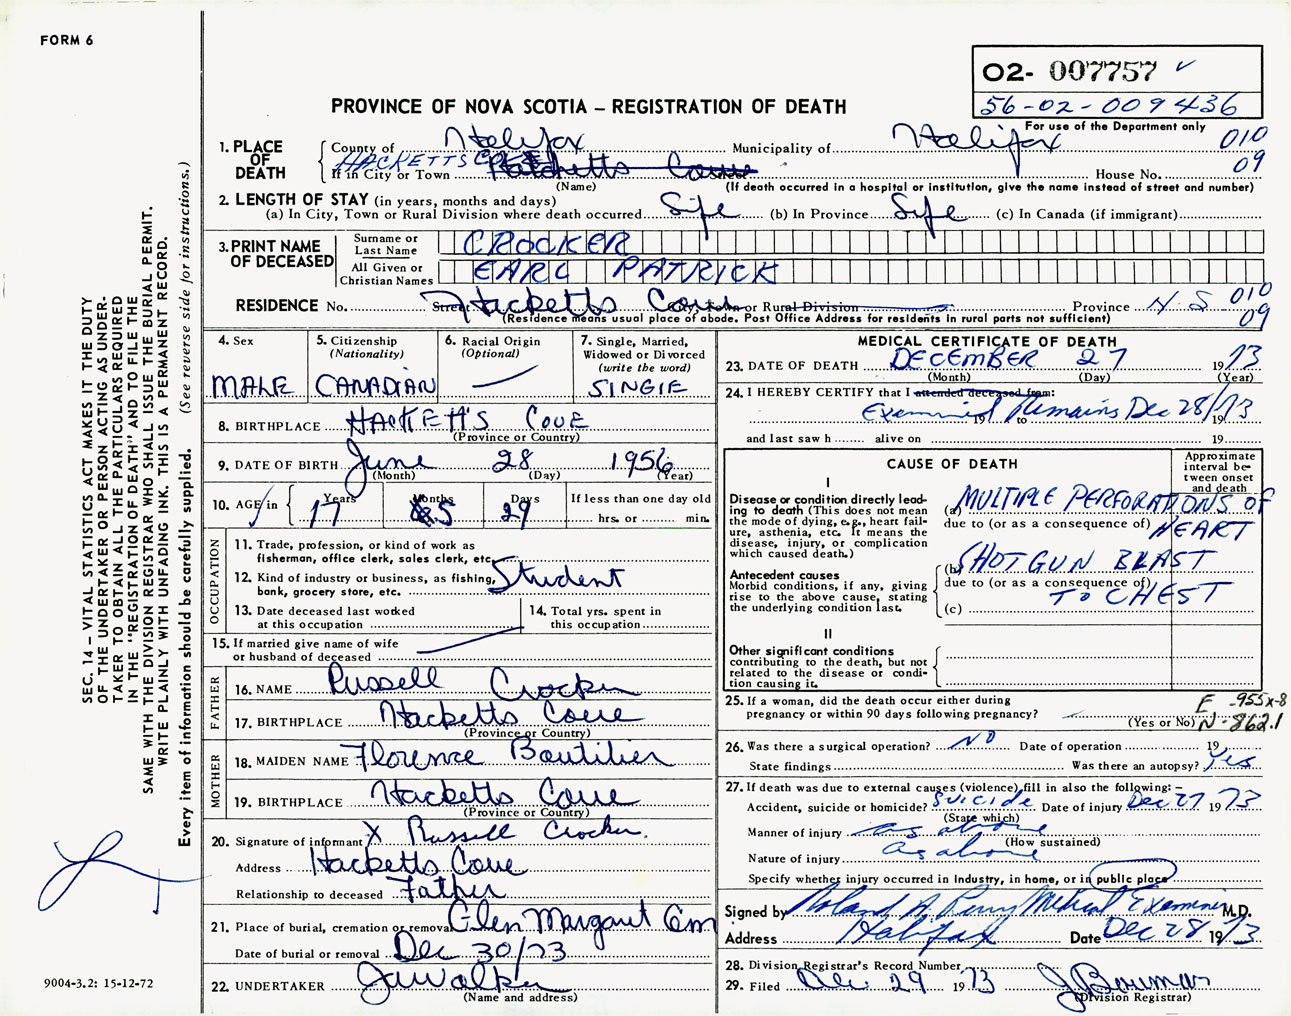 FORM 6
O2- 007757 ✓
56-02-009436
For use of the Department only
PROVINCE OF NOVA SCOTIA – REGISTRATION OF DEATH
1. PLACE OF DEATH
County of Halifax Municipality of Halifax 010
HACKETTS COVE
If in City or Town Hatchetts Cove Street House No. 09
(Name) (If death occurred in a hospital or institution, give the name instead of street and number)
2. LENGTH OF STAY (in years, months and days)
(a) In City, Town or Rural Division where death occurred Life (b) In Province Life (c) In Canada (if immigrant)
3. PRINT NAME OF DECEASED
Surname or Last Name CROCKER
All Given or Christian Names EARL PATRICK
RESIDENCE No. Street Hacketts Cove City, Town or Rural Division Province N.S 010
(Residence means usual place of abode. Post Office Address for residents in rural parts not sufficient) 09
4. Sex
MALE
5. Citizenship
(Nationality)
CANADIAN
6. Racial Origin
(Optional)
7. Single, Married, Widowed or Divorced
(write the word)
SINGlE
8. BIRTHPLACE HACKETT'S COVE
(Province or Country)
9. DATE OF BIRTH June 28 1956
(Month) (Day) (Year)
10. AGE in Years Months Days If less than one day old
17 5 29 hrs. or min.
OCCUPATION
11. Trade, profession, or kind of work as fisherman, office clerk, sales clerk, etc.
12. Kind of industry or business, as fishing, bank, grocery store, etc. Student
13. Date deceased last worked at this occupation
14. Total yrs. spent in this occupation
15. If married give name of wife or husband of deceased
FATHER
16. NAME Russell Crocker
17. BIRTHPLACE Hacketts Cove
(Province or Country)
MOTHER
18. MAIDEN NAME Florence Boutilier
19. BIRTHPLACE Hacketts Cove
(Province or Country)
20. Signature of informant X Russell Crocker.
Address Hacketts Cove
Relationship to deceased Father
21. Place of burial, cremation or removal Glen Margaret Cem
Date of burial or removal Dec 30/73
22. UNDERTAKER J A Walker
(Name and address)
MEDICAL CERTIFICATE OF DEATH
23. DATE OF DEATH DECEMBER 27 1973
(Month) (Day) (Year)
24. I HEREBY CERTIFY that I attended deceased from:
Examined Remains Dec 28/73
19 to 19
and last saw h alive on 19
CAUSE OF DEATH
Approximate interval between onset and death
I
Disease or condition directly leading to death (This does not mean the mode of dying, e.g., heart failure, asthenia, etc. It means the disease, injury, or complication which caused death.)
(a) MULTIPLE PERFORATIONS OF
due to (or as a consequence of) HEART
Antecedent causes
Morbid conditions, if any, giving rise to the above cause, stating the underlying condition last.
(b) SHOTGUN BLAST
due to (or as a consequence of) TO CHEST
(c)
II
Other significant conditions contributing to the death, but not related to the disease or condition causing it.
25. If a woman, did the death occur either during pregnancy or within 90 days following pregnancy? (Yes or No)
E -955x-8
N-862.1
26. Was there a surgical operation? NO Date of operation 19
State findings Was there an autopsy? Yes
27. If death was due to external causes (violence) fill in also the following: –
Accident, suicide or homicide? Suicide Date of injury Dec 27 1973
(State which)
Manner of injury as above
(How sustained)
Nature of injury as above
Specify whether injury occurred in Industry, in home, or in public place
Signed by Roland A. Perry Medical Examiner M.D.
Address Halifax Date Dec 28 1973
28. Division Registrar's Record Number
29. Filed Dec 29 1973 J Bowmas
(Division Registrar)
SEC. 14 – VITAL STATISTICS ACT MAKES IT THE DUTY
OF THE UNDERTAKER OR PERSON ACTING AS UNDER-
TAKER TO OBTAIN ALL THE PARTICULARS REQUIRED
IN THE "REGISTRATION OF DEATH" AND TO FILE THE
SAME WITH THE DIVISION REGISTRAR WHO SHALL ISSUE THE BURIAL PERMIT.
WRITE PLAINLY WITH UNFADING INK. THIS IS A PERMANENT RECORD.
Every item of information should be carefully supplied. (See reverse side for instructions.)
9004-3.2: 15-12-72